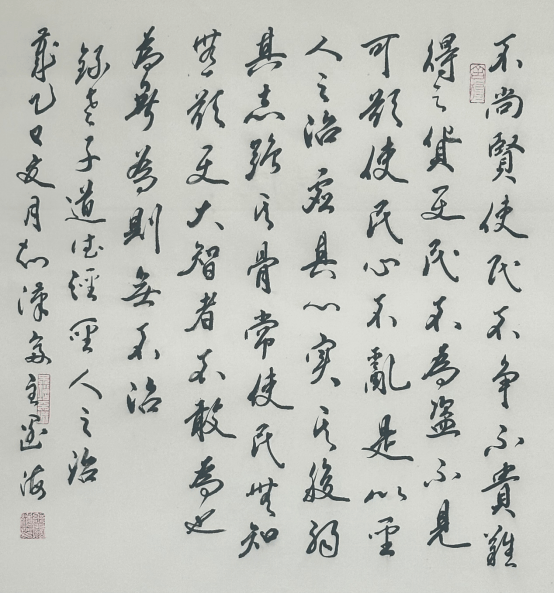 不尚賢使民不争不貴難
得之貨使民不為盗不見
可欲使民心不亂是以聖
人之治虚其心實其腹弱
其志強其骨常使民無知
無欲使夫智者不敢為也
為無為則無不治
録老子道德經聖人之治
歲乙巳文月